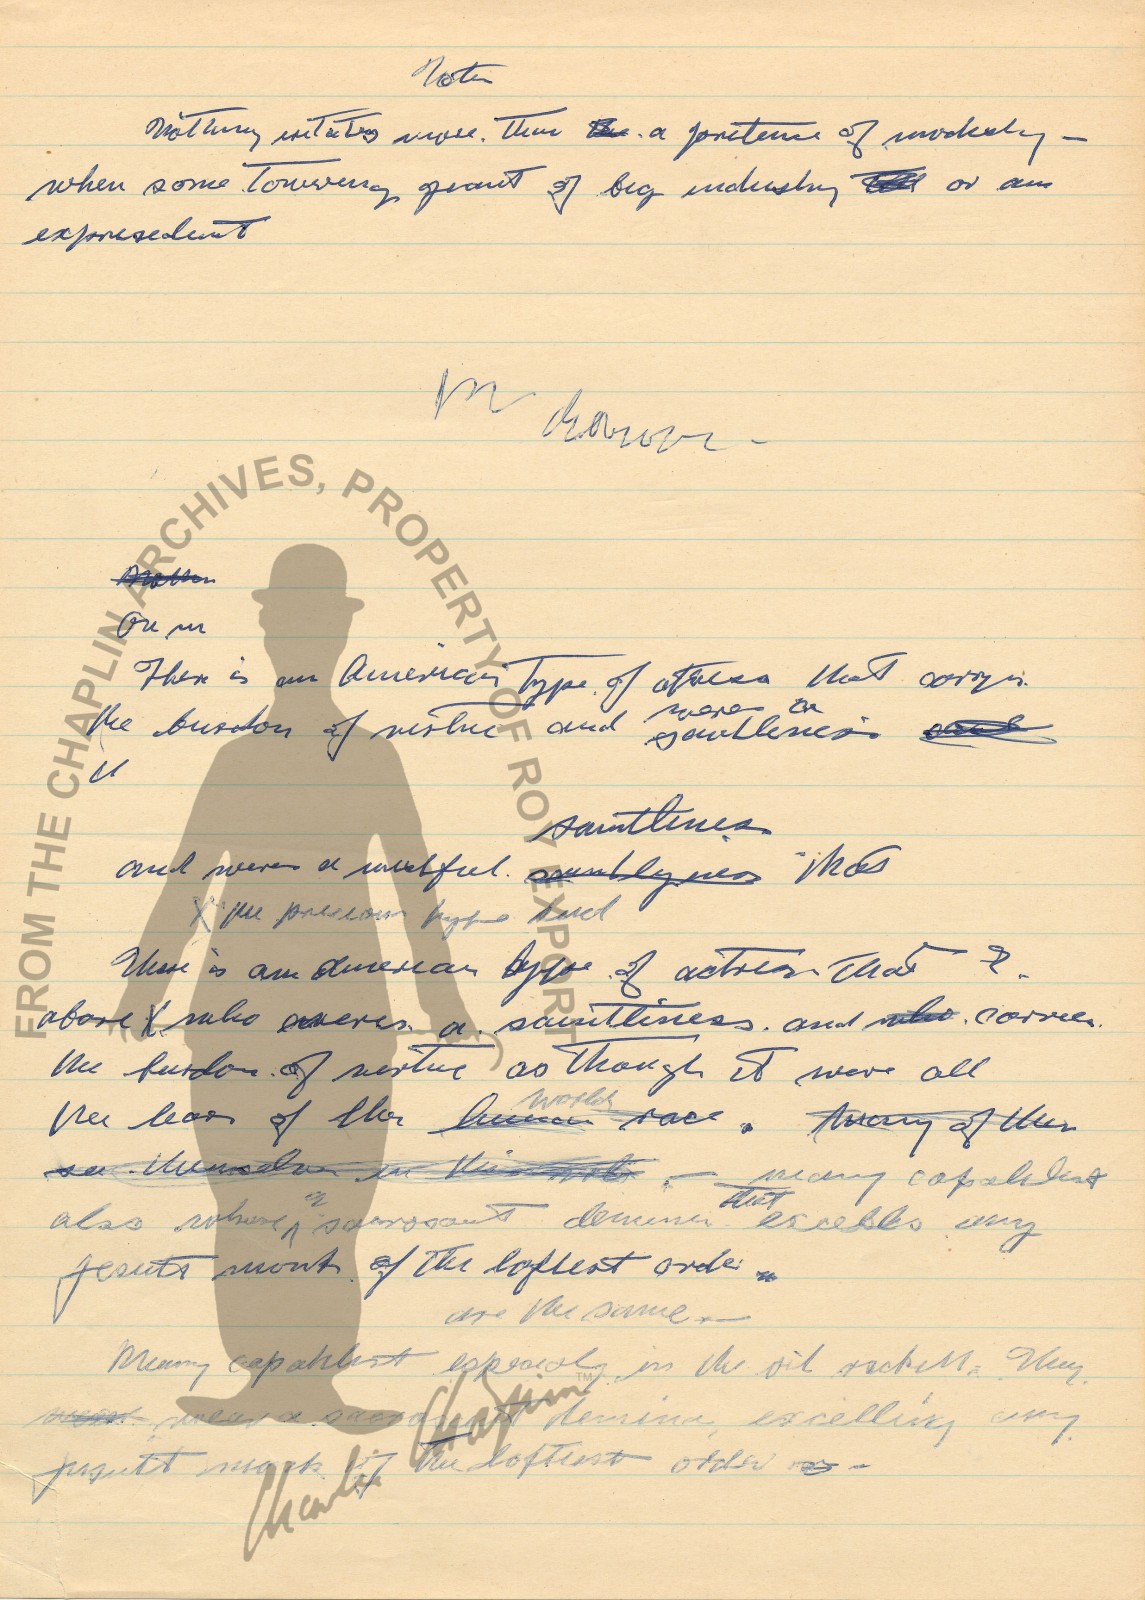 Notes
Nothing iritates more than a pretence of modesty —
when some Towering giant of big industry or an
expresedent
On m
There is an American Type of atress that carrys
the burdon of virtue and wears a
saintliness
and wears a saintliness that
X the precious type and
There is an American type of actress that ?
above X who wears a saintliness and who carries
the burdon of virtue as though it were all
the of the human race. Many of them
world
many capahlist
also where a sacrosant demina that excells any
jesuits monk of the loftest order
are the same —
Many capahlist especialy in the oil rackett. They
wear a demina, excelling any
jesuitt monk of the loftiest order —
FROM THE CHAPLIN ARCHIVES, PROPERTY OF ROY EXPORT
Charlie Chaplin™